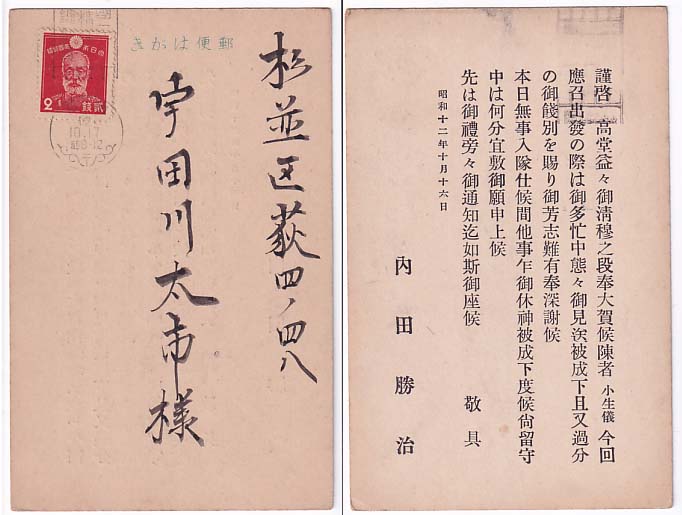 きがは便郵
杉並区荻四ノ四八
宇田川太市様
2
銭貳
12
10.17
謹啓 高堂益々御淸穆之段奉大賀候陳者 小生儀 今回
應召出發の際は御多忙中態々御見送被成下且又過分
の御餞別を賜り御芳志難有奉深謝候
本日無事入隊仕候間他事乍御休神被成下度候尙留守
中は何分宜敷御願申上候
先は御禮旁々御通知迄如斯御座候 敬具
昭和十二年十月十六日
內田勝治